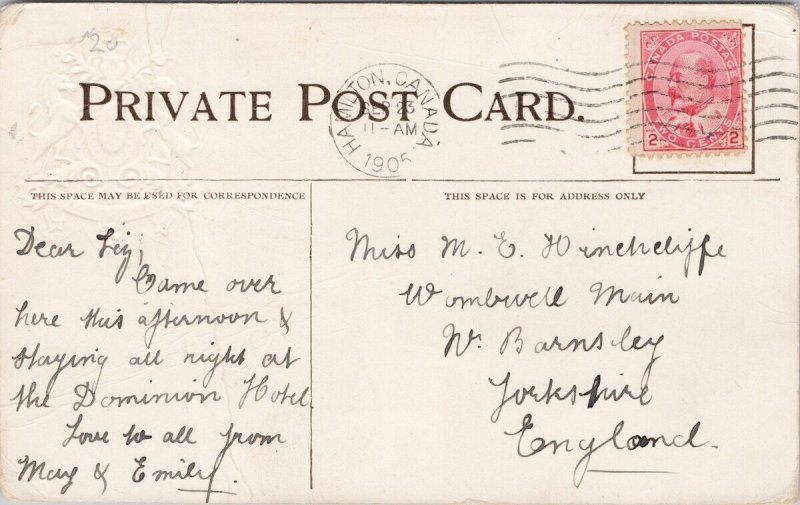 20
PRIVATE POST CARD.
HAMILTON, CANADA
SEP 23
11-AM
1905
CANADA POSTAGE
2 TWO CENTS 2
THIS SPACE MAY BE USED FOR CORRESPONDENCE
THIS SPACE IS FOR ADDRESS ONLY
Dear Liz,
Came over
here this afternoon &
staying all night at
the Dominion Hotel
Love to all from
May & Emily.
Miss M. E. Hinchcliffe
Wombwell Main
Nr. Barnsley
Yorkshire
England.